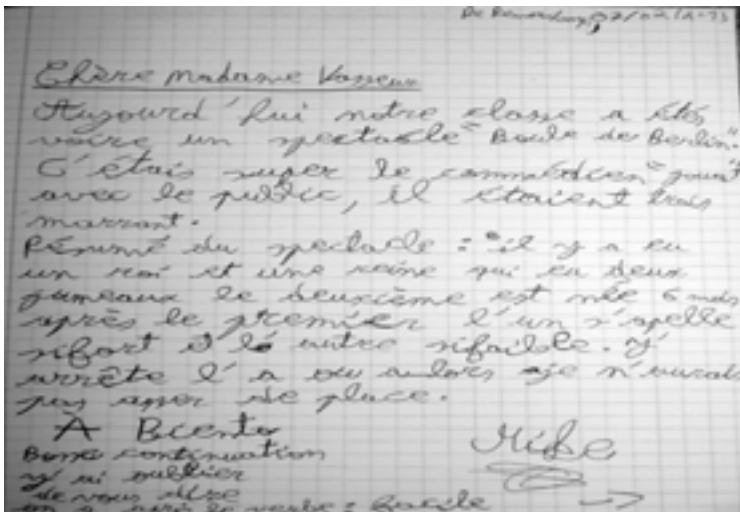 Chère madame Vasseur
Aujourd'hui notre classe a étés
voire un spectacle "Boule de Berlin".
C'étais super le commédien "jouait"
avec le public, il étaient trais
marrant.
Résumé du spectacle : "il y a eu
un roi et une reine qui eu deux
jumeaux le deuxième est née 6 mois
après le premier l'un s'apelle
sifort et le autre sifaible. J'
arrête l'a ou alors je n'aurais
pas asser de place.
À Biento
Bonne continuation
j'ai oublier
de vous dire
on a le verbe : Facile
Mike